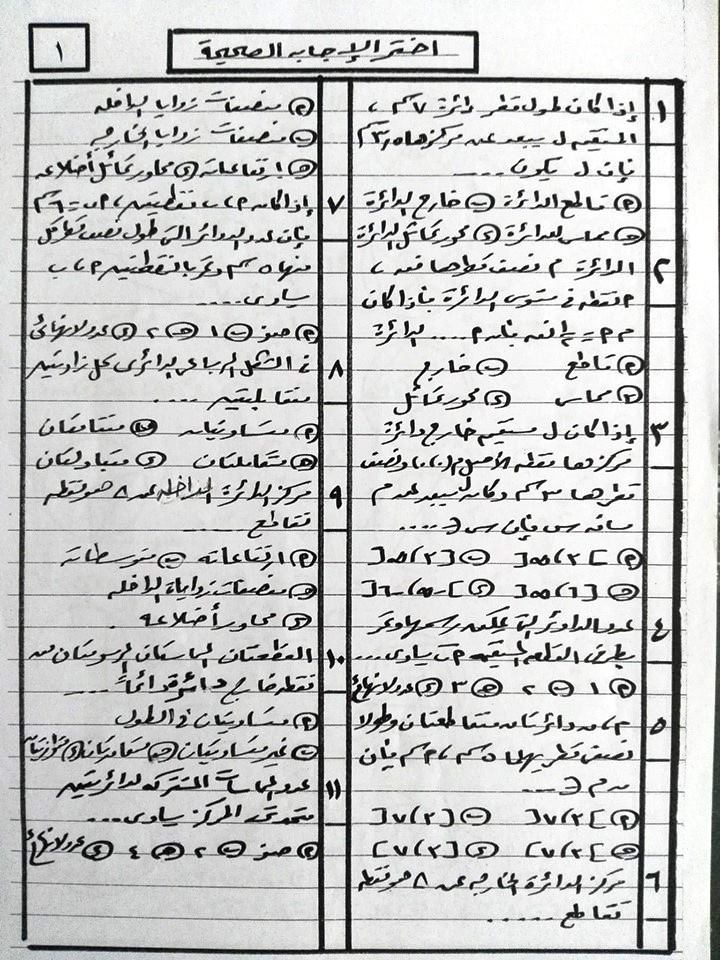 اختر الإجابه الصحيحة
١
١ إذا كان طول قطر دائرة ٧ سم ،
المستقيم ل يبعد عن مركزها ٣٫٥ سم
فإن ل يكون ....
(أ) قاطع الدائرة (ب) خارج الدائرة
(ج) مماس للدائرة (د) محور تماثل الدائرة
٢ الدائرة م نصف قطرها نق ،
أ نقطه فى مستوى الدائرة فإذا كان
م أ = نق فإنه أ .... الدائرة
(أ) قاطع (ب) خارج
(ج) مماس (د) محور تماثل
٣ إذا كان ل مستقيم خارج دائرة
مركزها نقطه الأصل م (٠،٠) ونصف
قطرها ٣ سم وكان ل يبعد عن م
مسافه س فإن س ∈ ....
عدد الدوائر التى يمكن رسمها وتمر
٤ بطرفى القطعه المستقيمه أ ب يساوى ...
(أ) ١ (ب) ٢ (ج) ٣ (د) عدد لانهائى
٥ م ، ن دائرتان متقاطعتان وطولا
نصف قطريهما ٥ سم ، ٢ سم فإن
م ن ∈ ....
(أ) ]٣ ، ٧[ (ب) [٣ ، ٧[
(ج) ]٣ ، ٧] (د) [٣ ، ٧]
٦ مركز الدائرة الخارجه عن ∆ هو نقطه
تقاطع .....
(أ) منصفات زوايا الداخله
(ب) منصفات زوايا الخارجه
(ج) ارتفاعاته (د) محاور تماثل أضلاعه
٧ إذا كانت أ ، ب نقطتين ، أ ب = ٦ سم
فإن عدد الدوائر التى طول نصف قطر كل
منها ٥ سم وتمر بالنقطتين أ ، ب
يساوى ....
(أ) صفر (ب) ١ (ج) ٢ (د) عدد لانهائى
٨ فى الشكل الرباعى الدائرى كل زاويتين
متقابلتين ....
(أ) متساويتان (ب) متتامتان
(ج) متكاملتان (د) متبادلتان
٩ مركز الدائرة الداخله عن ∆ هو نقطه
تقاطع ....
(أ) ارتفاعاته (ب) متوسطاته
(ج) منصفات زواياه الداخله
(د) محاور أضلاعه
١٠ القطعتان المماستان المرسومتان من
نقطه خارج دائرة دائماً ....
(أ) متساويتان فى الطول
(ب) غير متساويتان (ج) متعامدتان (د) متوازيتان
١١ عدد المماسات المشتركه لدائرتين
متحدتى المركز يساوى ....
(أ) صفر (ب) ٢ (ج) ٤ (د) عدد لانهائى